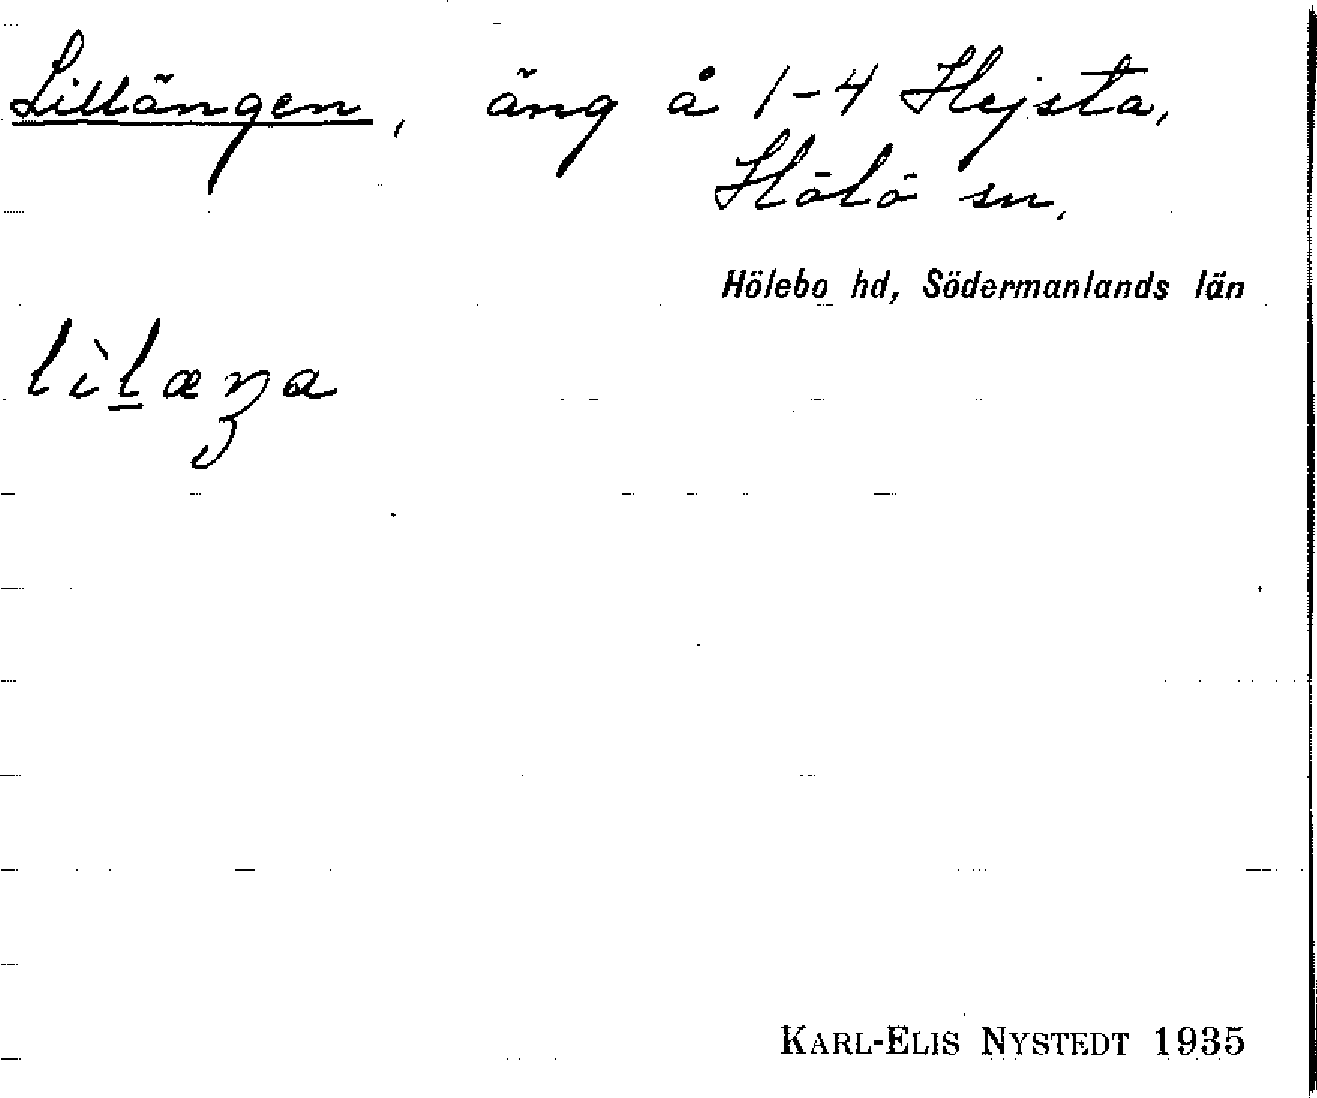 Lillängen, äng å 1-4 Hejsta,
Hölö sn,
Hölebo hd, Södermanlands län
lìl̲æŋa
KARL-ELIS NYSTEDT 1935